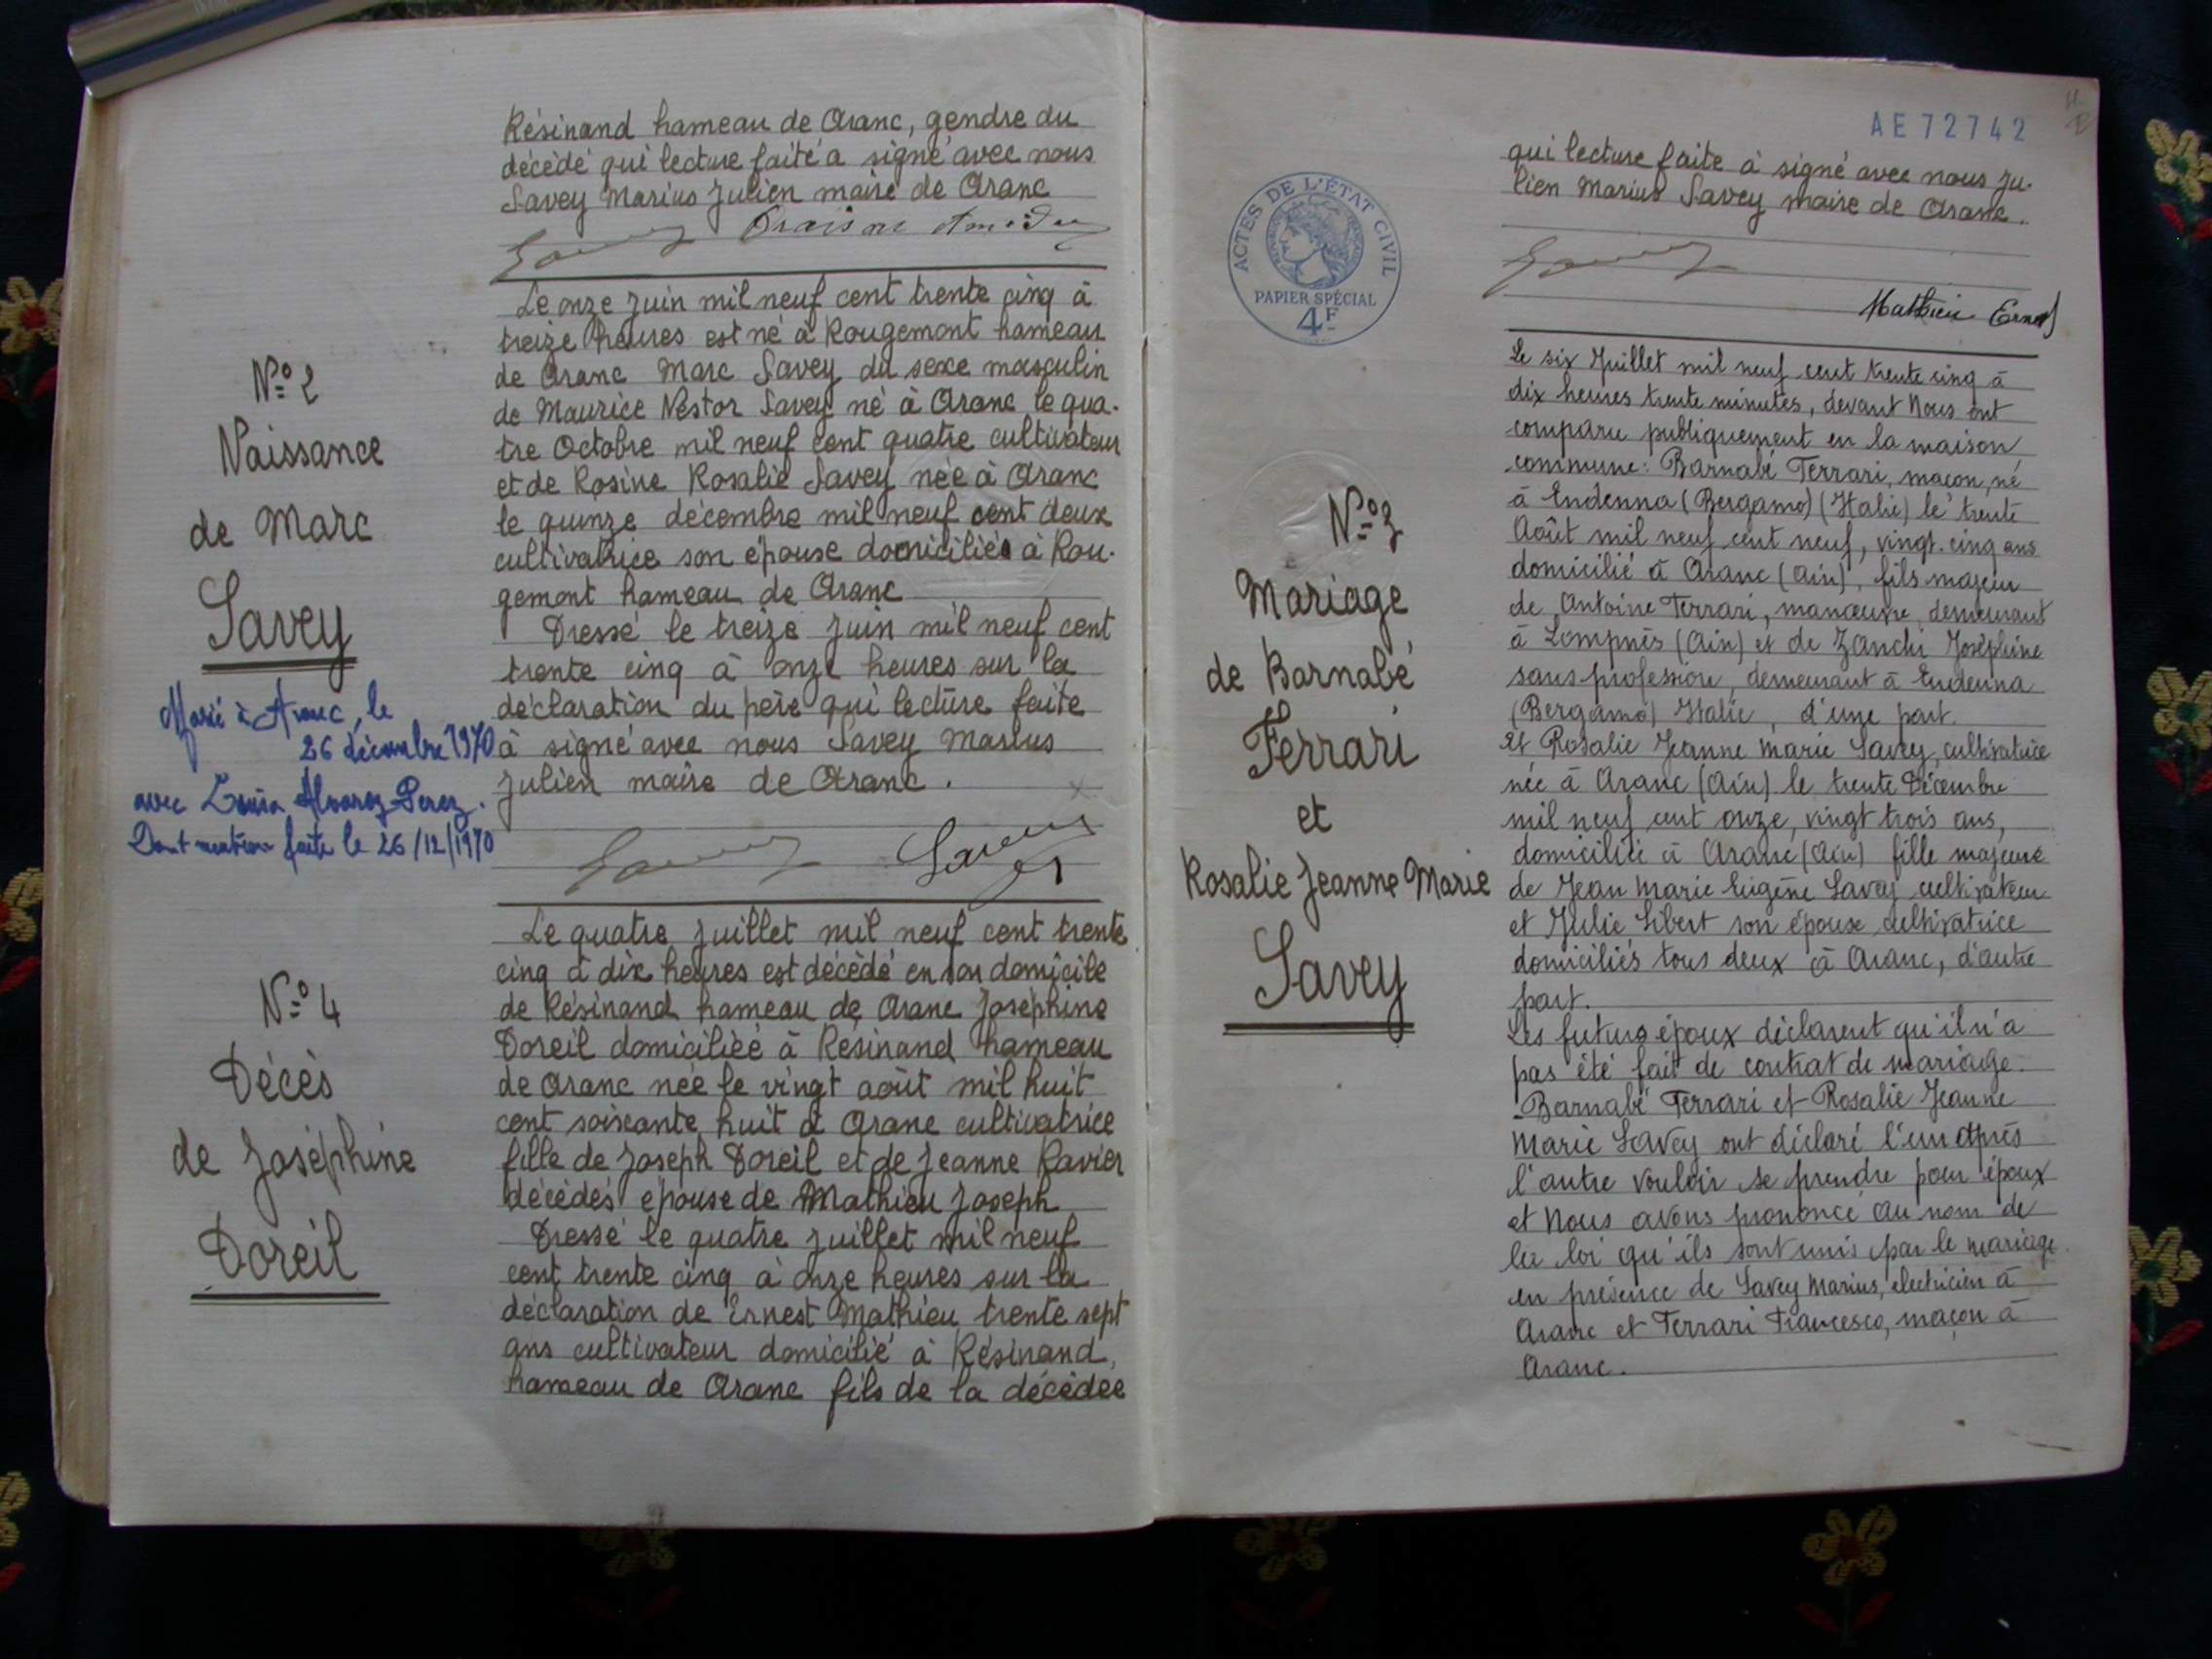 Résinand hameau de Aranc, gendre du
décédé qui lecture faite a signé avec nous
Savey Marius Julien maire de Aranc
N° 2
Naissance
de Marc
Savey
Marié à Aranc, le
26 décembre 1970
avec Alvarez-Perez.
Dont mention faite le 26/12/1970
Le onze juin mil neuf cent trente cinq à
treize heures est né à Rougemont hameau
de Aranc Marc Savey du sexe masculin
de Maurice Nestor Savey né à Aranc le qua-
tre Octobre mil neuf cent quatre cultivateur
et de Rosine Rosalie Savey née à Aranc
le quinze décembre mil neuf cent deux
cultivatrice son épouse domiciliés à Rou-
gemont hameau de Aranc
Dressé le treize juin mil neuf cent
trente cinq à onze heures sur la
déclaration du père qui lecture faite
à signé avec nous Savey Marius
Julien maire de Aranc.
Savey
N° 4
Décès
de Joséphine
Doreil
Le quatre juillet mil neuf cent trente
cinq à dix heures est décédé en son domicile
de Résinand hameau de Aranc Joséphine
Doreil domiciliée à Résinand hameau
de Aranc née le vingt août mil huit
cent soixante huit à Aranc cultivatrice
fille de Joseph Doreil et de Jeanne Ravier
décédés épouse de Mathieu Joseph
Dressé le quatre juillet mil neuf
cent trente cinq à onze heures sur la
déclaration de Ernest Mathieu trente sept
ans cultivateur domicilié à Résinand,
hameau de Aranc fils de la décédée
AE72742
qui lecture faite à signé avec nous Ju-
lien Marius Savey maire de Aranc.
Mathieu Ernest
ACTES DE L'ÉTAT CIVIL
PAPIER SPÉCIAL
4F
N° 3
Mariage
de Barnabé
Ferrari
et
Rosalie Jeanne Marie
Savey
Le six Juillet mil neuf cent trente cinq à
dix heures trente minutes, devant Nous ont
comparu publiquement en la maison
commune: Barnabé Ferrari, maçon, né
à Endenna (Bergamo) (Italie) le trente
Août mil neuf cent neuf, vingt-cinq ans
domicilié à Aranc (Ain), fils majeur
de Antoine Ferrari, manœuvre, demeurant
à Lompnès (Ain) et de Zanchi Joséphine
sans profession, demeurant à Endenna
(Bergamo) Italie, d'une part.
Et Rosalie Jeanne Marie Savey, cultivatrice
née à Aranc (Ain) le trente Décembre
mil neuf cent onze, vingt trois ans,
domiciliée à Aranc (Ain) fille majeure
de Jean Marie Eugène Savey cultivateur
et Julie Libert son épouse cultivatrice
domiciliés tous deux à Aranc, d'autre
part.
Les futurs époux déclarent qu'il n'a
pas été fait de contrat de mariage.
Barnabé Ferrari et Rosalie Jeanne
Marie Savey ont déclaré l'un après
l'autre vouloir se prendre pour époux
et Nous avons prononcé au nom de
la loi qu'ils sont unis par le mariage
en présence de Savey Marius, électricien à
Aranc et Ferrari Francesco, maçon à
Aranc.